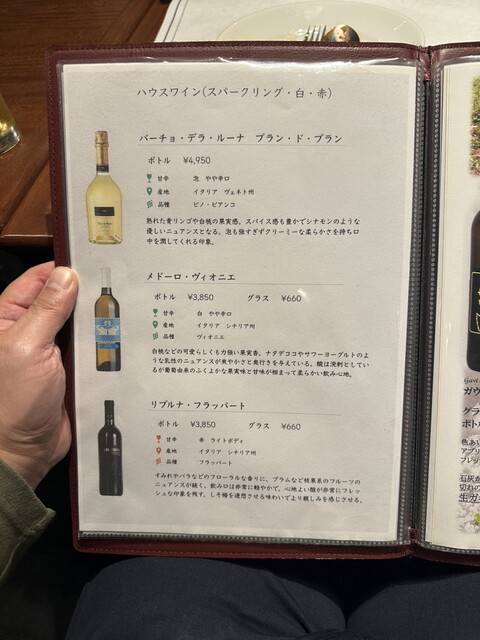 ハウスワイン(スパークリング・白・赤)
バーチョ・デラ・ルーナ ブラン・ド・ブラン
ボトル ¥4,950
甘辛 泡 やや辛口
産地 イタリア ヴェネト州
品種 ピノ・ビアンコ
熟れた青リンゴや白桃の果実感。スパイス感も豊かでシナモンのような
優しいニュアンスとなる。泡も強すぎずクリーミーな柔らかさを持ち口
中を潤してくれる印象。
メドーロ・ヴィオニエ
ボトル ¥3,850 グラス ¥660
甘辛 白 やや辛口
産地 イタリア シチリア州
品種 ヴィオニエ
白桃などの可愛らしくも力強い果実香。ナタデココやサワーヨーグルトのよ
うな乳性のニュアンスが爽やかさと奥行きを与えている。酸は溌剌としてい
るが葡萄由来のふくよかな果実味と甘味が相まって柔らかい飲み心地。
リブルナ・フラッパート
ボトル ¥3,850 グラス ¥660
甘辛 赤 ライトボディ
産地 イタリア シチリア州
品種 フラッパート
すみれやバラなどのフローラルな香りに、プラムなど核果系のフルーツの
ニュアンスが続く。飲み口は非常に軽やかで、心地よい酸が非常にフレッ
シュな印象を残す。しそ梅を連想させる味わいでより親しみを感じさせる。
Gavi
ガウ
グラ
ボト
色あい
アプリ
フレッ
石灰が
切れの
生ガ